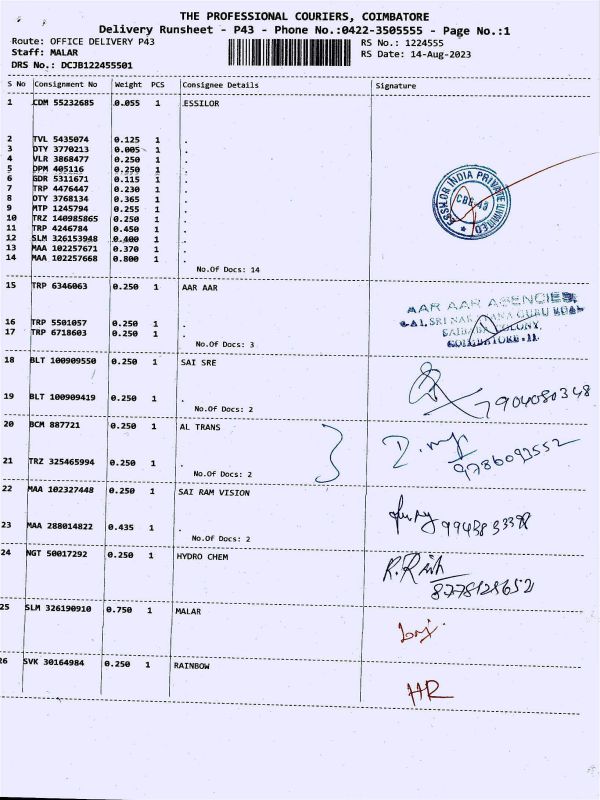 THE PROFESSIONAL COURIERS, COIMBATORE
Delivery Runsheet - P43 - Phone No.:0422-3505555 - Page No.:1
Route: OFFICE DELIVERY P43 RS No.: 1224555
Staff: MALAR RS Date: 14-Aug-2023
DRS No.: DCJB122455501
S No Consignment No Weight PCS Consignee Details Signature
1 CDM 55232685 0.055 1 ESSILOR
2 TVL 5435074 0.125 1 .
3 DTY 3770213 0.005 1 .
4 VLR 3868477 0.250 1 .
5 DPM 405116 0.250 1 .
6 GDR 5311671 0.115 1 .
7 TRP 4476447 0.230 1 .
8 DTY 3768134 0.365 1 .
9 MTP 1245794 0.255 1 .
10 TRZ 140985865 0.250 1 .
11 TRP 4246784 0.450 1 .
12 SLM 326153948 0.400 1 .
13 MAA 102257671 0.370 1 .
14 MAA 102257668 0.800 1 .
No.Of Docs: 14
ESSILOR INDIA PRIVATE LIMITED
CBE-43
15 TRP 6346063 0.250 1 AAR AAR
16 TRP 5501057 0.250 1 .
17 TRP 6718603 0.250 1 .
No.Of Docs: 3
AAR AAR AGENCIES
SAIBABA COLONY,
COIMBATORE - 11
18 BLT 100909550 0.250 1 SAI SRE
19 BLT 100909419 0.250 1 .
No.Of Docs: 2
7904080348
20 BCM 887721 0.250 1 AL TRANS
21 TRZ 325465994 0.250 1 .
No.Of Docs: 2
9786092552
22 MAA 102327448 0.250 1 SAI RAM VISION
23 MAA 288014822 0.435 1 .
No.Of Docs: 2
24 NGT 50017292 0.250 1 HYDRO CHEM
8778128652
25 SLM 326190910 0.750 1 MALAR
26 SVK 30164984 0.250 1 RAINBOW
HR